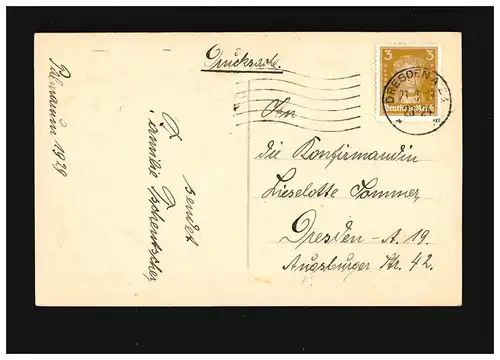 Drucksache.
3
Deutsches Reich
DRESDEN-A 24
An
die Konfirmandin
Lieselotte Sommer
Dresden-A. 19.
Augsburger Str. 42.
Palmarum 1929
sendet
Familie